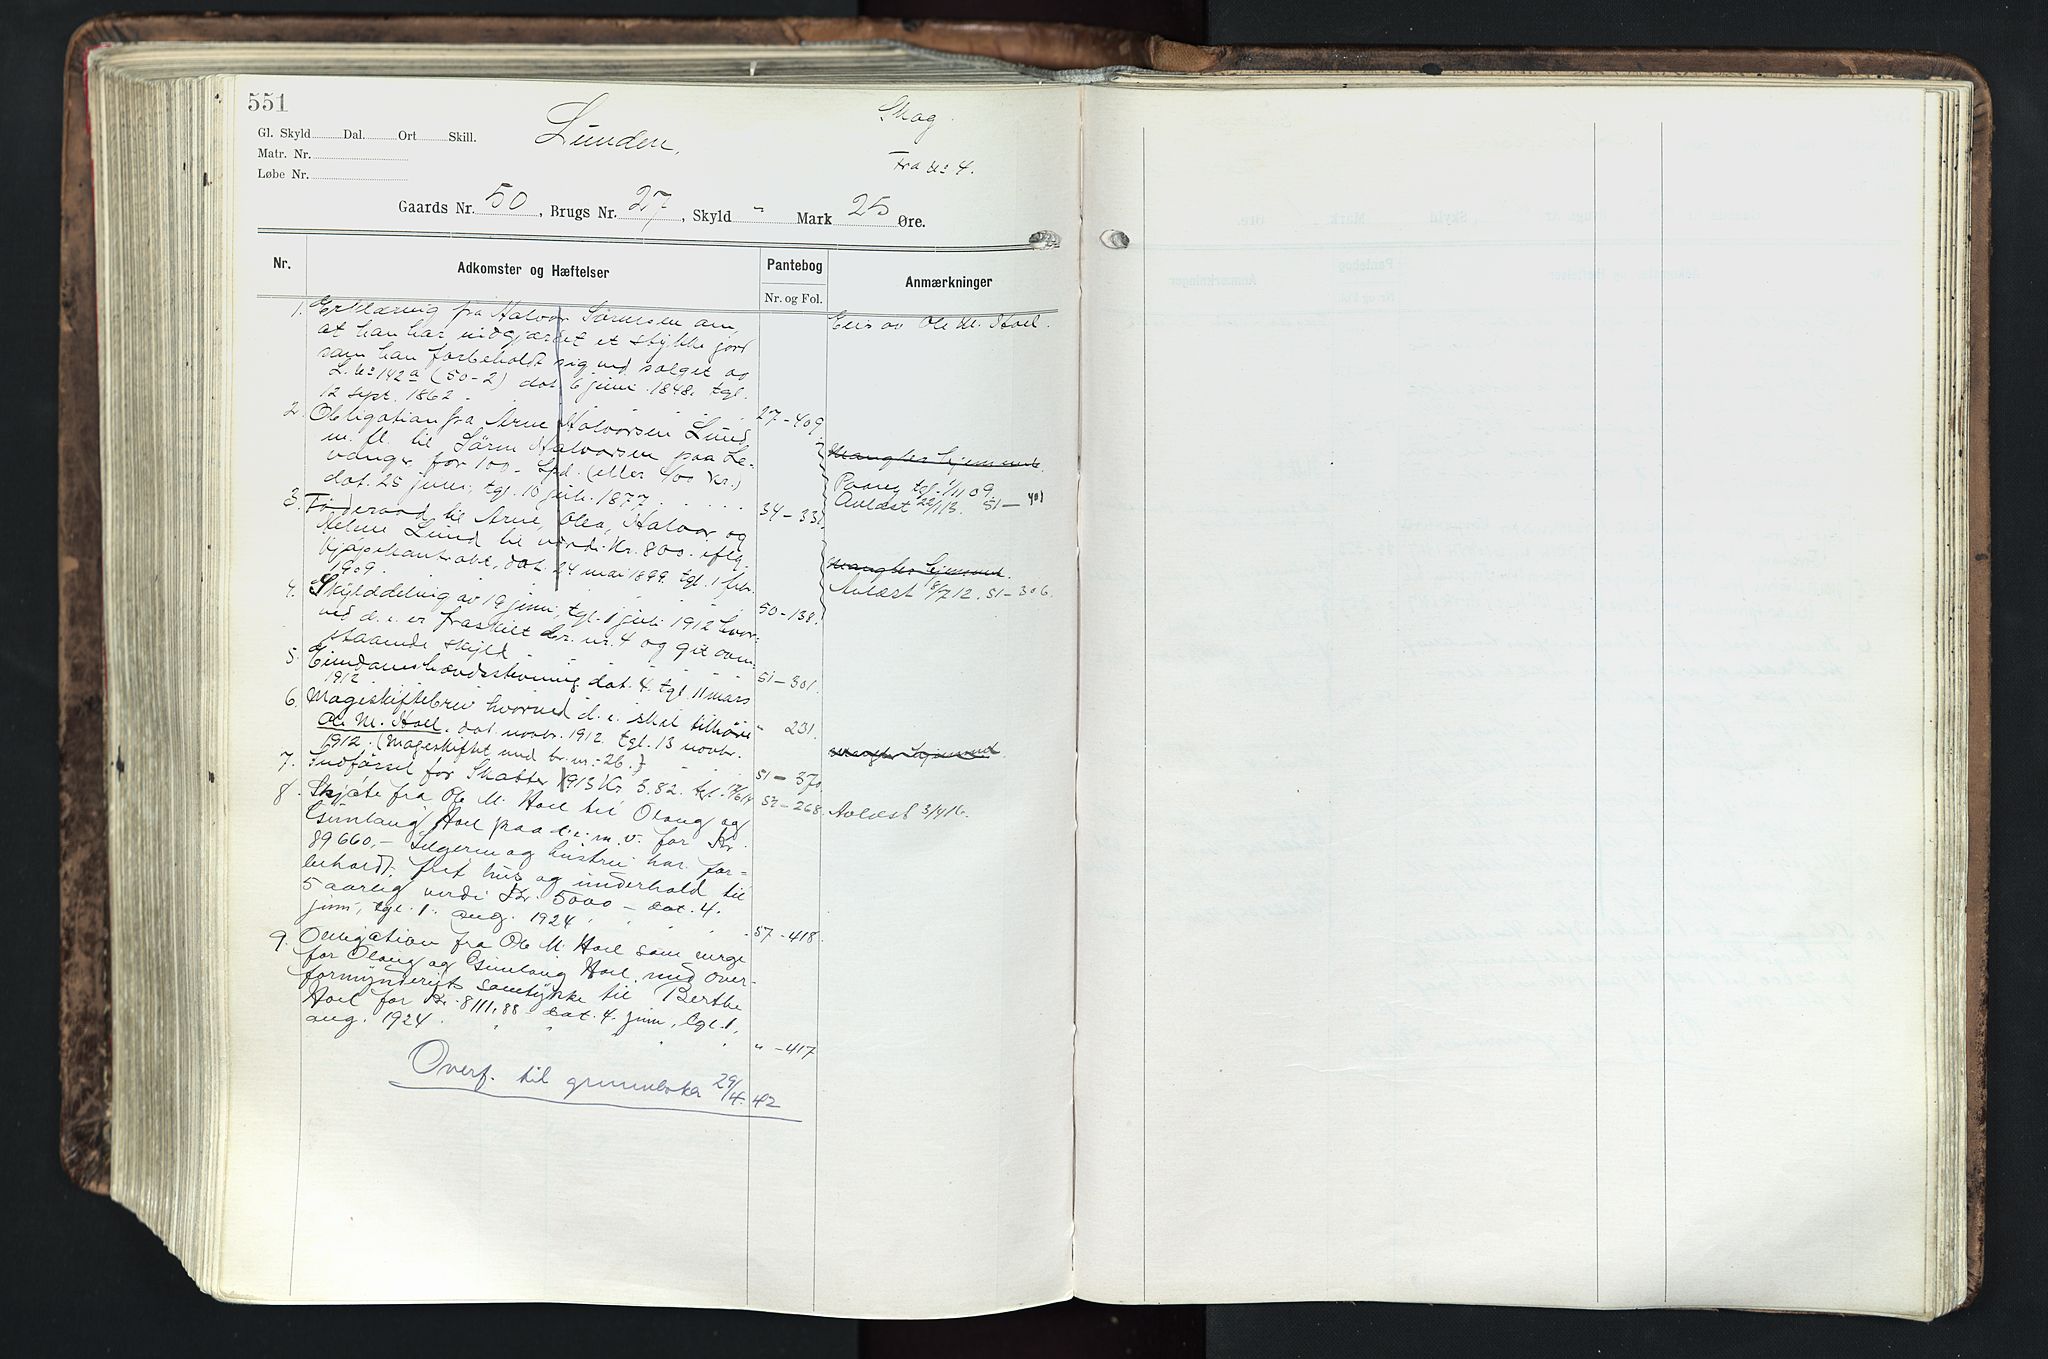 551
Gl. Skyld Dal. Ort Skill.
Matr. Nr.
Løbe Nr.
Lunden,
Skog.
Fra No 4.
Gaards Nr. 50, Brugs Nr. 27, Skyld " Mark 25 Øre.
Nr.
Adkomster og Hæftelser
Pantebog
Nr. og Fol.
Anmærkninger
1. Erklæring fra Halvor Sørensen om,
at han har indgjærdet et stykke jord
som han forbeholdt sig ved salget av
L. No 142a (50-2) dat. 6 juni 1848, tgl.
12 sept. 1862. 27-409
Eies av Ole M. Hoel.
2. Obligation fra Arne Halvorsen Lund
m. fl. til Søren Halvorsen paa Le-
vanger for 100 Spd. (eller 400 Kr.)
dat. 25 juni, tgl. 10 juli 1877. 34-331
Mangler hjemmel.
Paaeg tgl. 1/11 09.
Avlæst 22/1 13. 51-401
3. Føderaad til Arne, Olea, Halvor og
Helene Lund til værdi Kr. 800. iflg.
kjøpekontrakt, dat. 24 mai 1899 tgl. 1 febr.
1909. 50-138.
Mangler hjemmel.
Avlæst 8/7 12. 51-306.
4. Skylddeling av 19 juni, tgl. 1 juli 1912 hvor-
ved d. e. er fraskilt br. nr. 4 og git oven-
staaende skyld 51-301.
5. Eiendomshævdsstevning dat. 4. tgl. 11 mars
1912 " 231.
6. Mageskiftebrev hvorved d. e. skal tilhøre
Ole M. Hoel. dat. novbr. 1912. tgl. 13 novbr.
1912. (Mageskiftet med br. nr. 26.) 51-370
Mangler hjemmel.
7. Indførsel for Skatter 1913 Kr. 3.82. tgl. 52-268.
Avlæst 3/4 16.
8. Skjøte fra Ole M. Hoel til Olaug og
Gunlaug Hoel paa d. e. m. v. for Kr.
89660,- Selgeren og hustru har for-
beholdt frit hus og underhold til
5 aarlig verdi Kr. 5000 - dat. 4.
juni, tgl. 1. aug. 1924 57-418.
9. Obligation fra Ole M. Hoel som verge
for Olaug og Gunlaug Hoel med over-
formynderiets samtykke til Berthe
Hoel for Kr. 8111,88 dat. 4. juni, tgl. 1.
aug. 1924. " -417
Overf. til grunnboka 29/4. 42